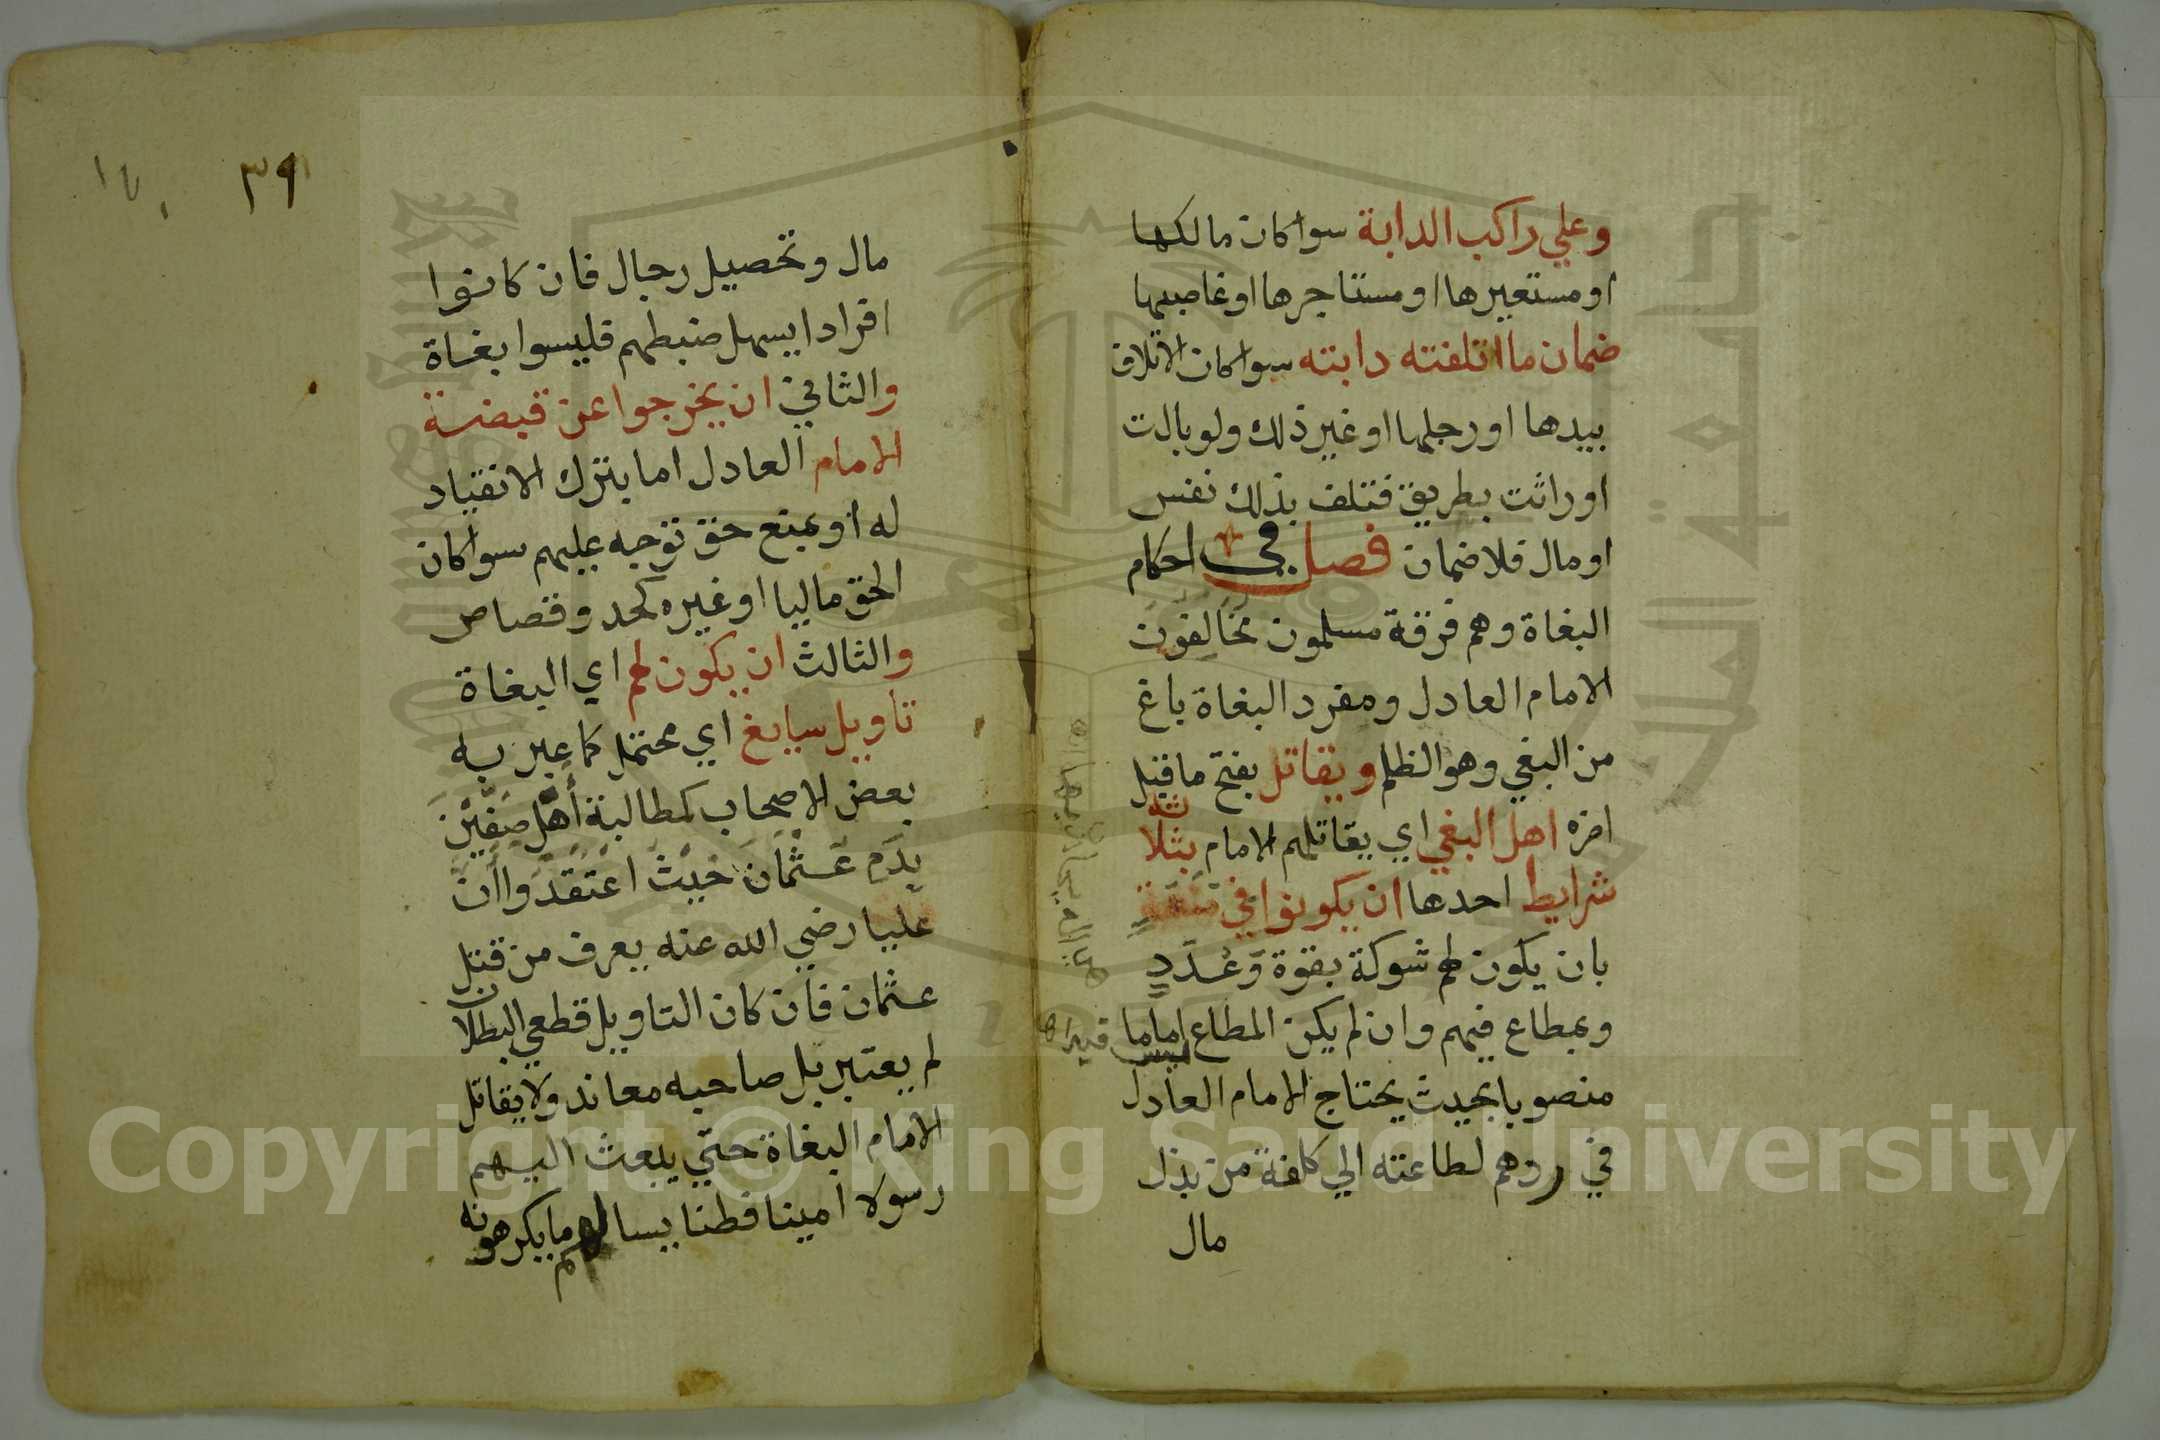 وعلي راكب الدابة سوا كان مالكها
او مستعيرها او مستاجرها او غاصبها
ضمان ما اتلفته دابته سوا كان الاتلاف
بيدها او رجلها او غير ذلك ولو بالت
او راثت بطريق فتلف بذلك نفس
او مال فلا ضمان فصل في احكام
البغاة وهم فرقة مسلمون مخَالِفُونَ
الامام العادل ومفرد البغاة باغ
من البغي وهو الظلم ويقاتل بفتح ما قبل
اخره اهل البغي اي يقاتلهم الامام بثلاثة
شرايط احدها ان يكونوا في منعة
بان يكون لهم شوكة بقوة وَعُدَدٍ
وبمطاع فيهم وان لم يكن المطاع اماما
منصوبا بحيث يحتاج الامام العادل
في ردهم لطاعته الي كلفة من بذل
مال
٣٩
مال وتحصيل رجال فان كانوا
افرادا يسهل ضبطهم فليسوا بغاة
والثاني ان يخرجوا عن قبضة
الامام العادل اما بترك الانقياد
له او بمنع حق توجه عليهم سوا كان
الحق ماليا او غيره كحد وقصاص
والثالث ان يكون لهم اي البغاة
تاويل سايغ اي محتمل كما عبر به
بعض الاصحاب كمطالبة أَهْل صِفِّيْنَ
بِدَمِ عُـثْمَانَ حَيْثُ اعْتَقَدُوا أَنَّ
عليا رضي الله عنه يعرف من قتل
عـثمان فان كان التاويل قطعي البطلان
لم يعتبر بل صاحبه معاند ولا يقاتل
الامام البغاة حتي يبعث اليـهم
رسولا امينا فطنا يسالهم ما يكرهونه
Copyright © King Saud University